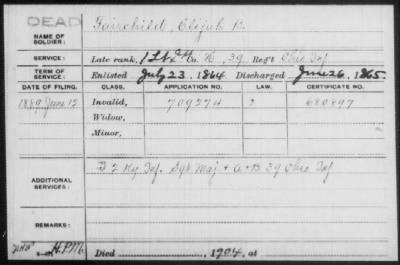 DEAD
NAME OF SOLDIER: Fairchild, Elijah B.
SERVICE: Late rank, 1 Lt Co. K, 39 Reg't Ohio Inf
TERM OF SERVICE: Enlisted July 23, 1864. Discharged June 26, 1865.
DATE OF FILING. CLASS. APPLICATION NO. LAW. CERTIFICATE NO.
1889 June 12 Invalid, 709274 680897
Widow,
Minor,
ADDITIONAL SERVICES: B 2 Ky. Inf. Sgt. Maj + A + B 39 Ohio Inf
REMARKS:
H.P.M. Died 1904, at